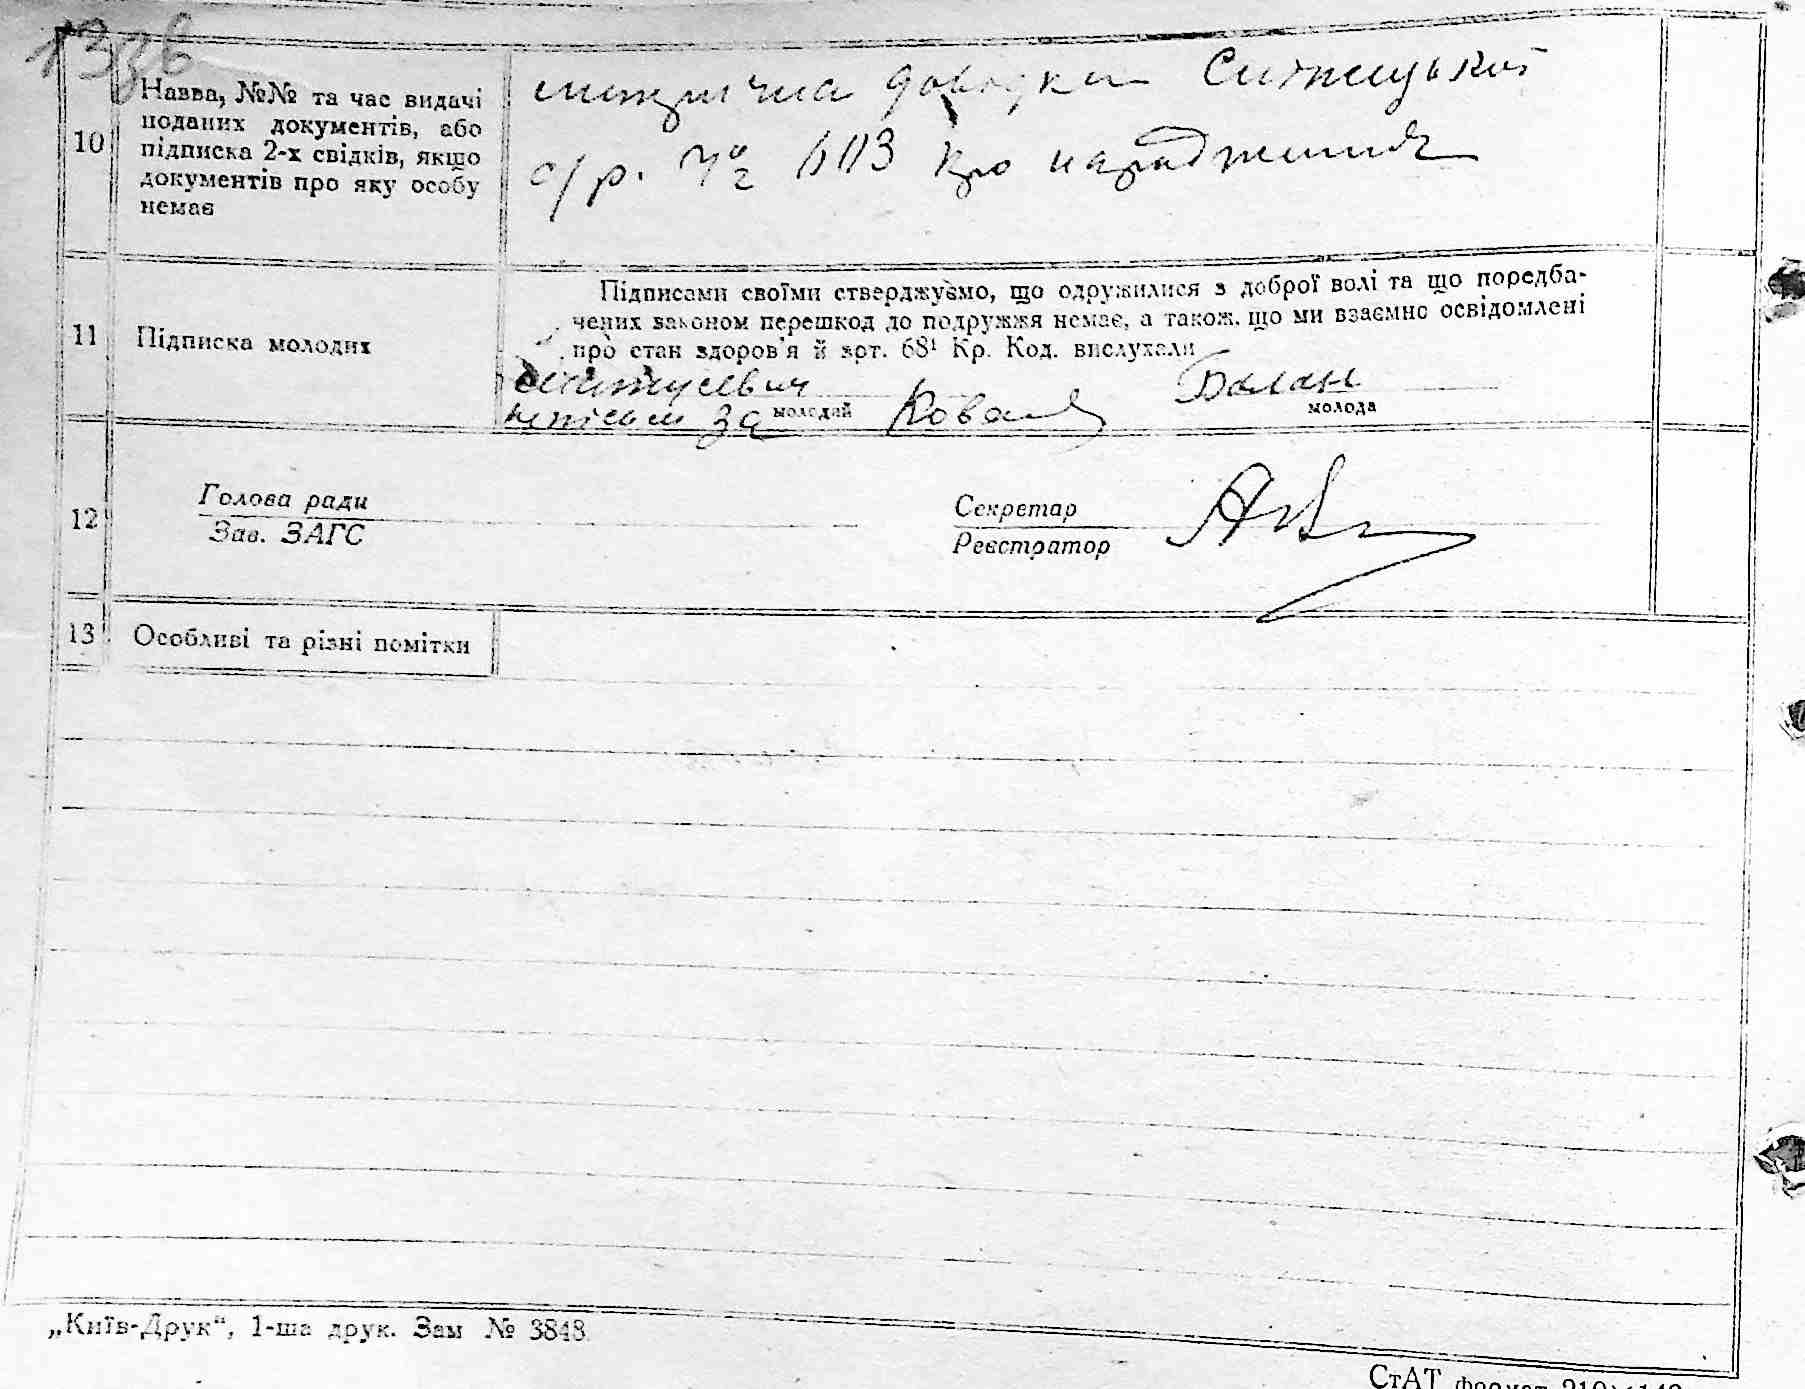 10
Назва, №№ та час видачі
поданих документів, або
підписка 2-х свідків, якщо
документів про яку особу
немає
метрична довідка
с/р. про народження
11
Підписка молодих
Підписами своїми стверджуємо, що одружилися з доброї волі та що передба-
чених законом перешкод до подружжя немає, а також, що ми взаємно освідомлені
про стан здоров'я й арт. 68¹ Кр. Код. вислухали
Балан
за молодий Коваль молода
12
Голова ради
Зав. ЗАГС
Секретар
Реєстратор
13 Особливі та різні помітки
„Київ-Друк“, 1-ша друк. Зам № 3848
СтАТ формат